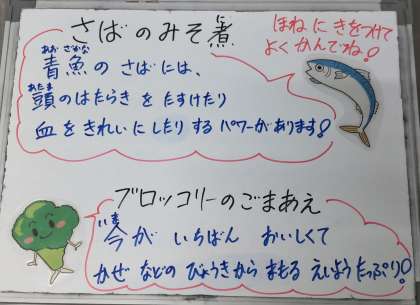 さばのみそ煮
に
ほねに きをつけて
よく かんでね!
あお ざかな
青魚の さばには、
あたま
頭のはたらき を たすけたり
血をきれいに したり する パワーがあります!
ブロッコリーのごまあえ
いま
今が いちばん おいしくて
かぜ などの びょうきから まもる えいよう たっぷり!